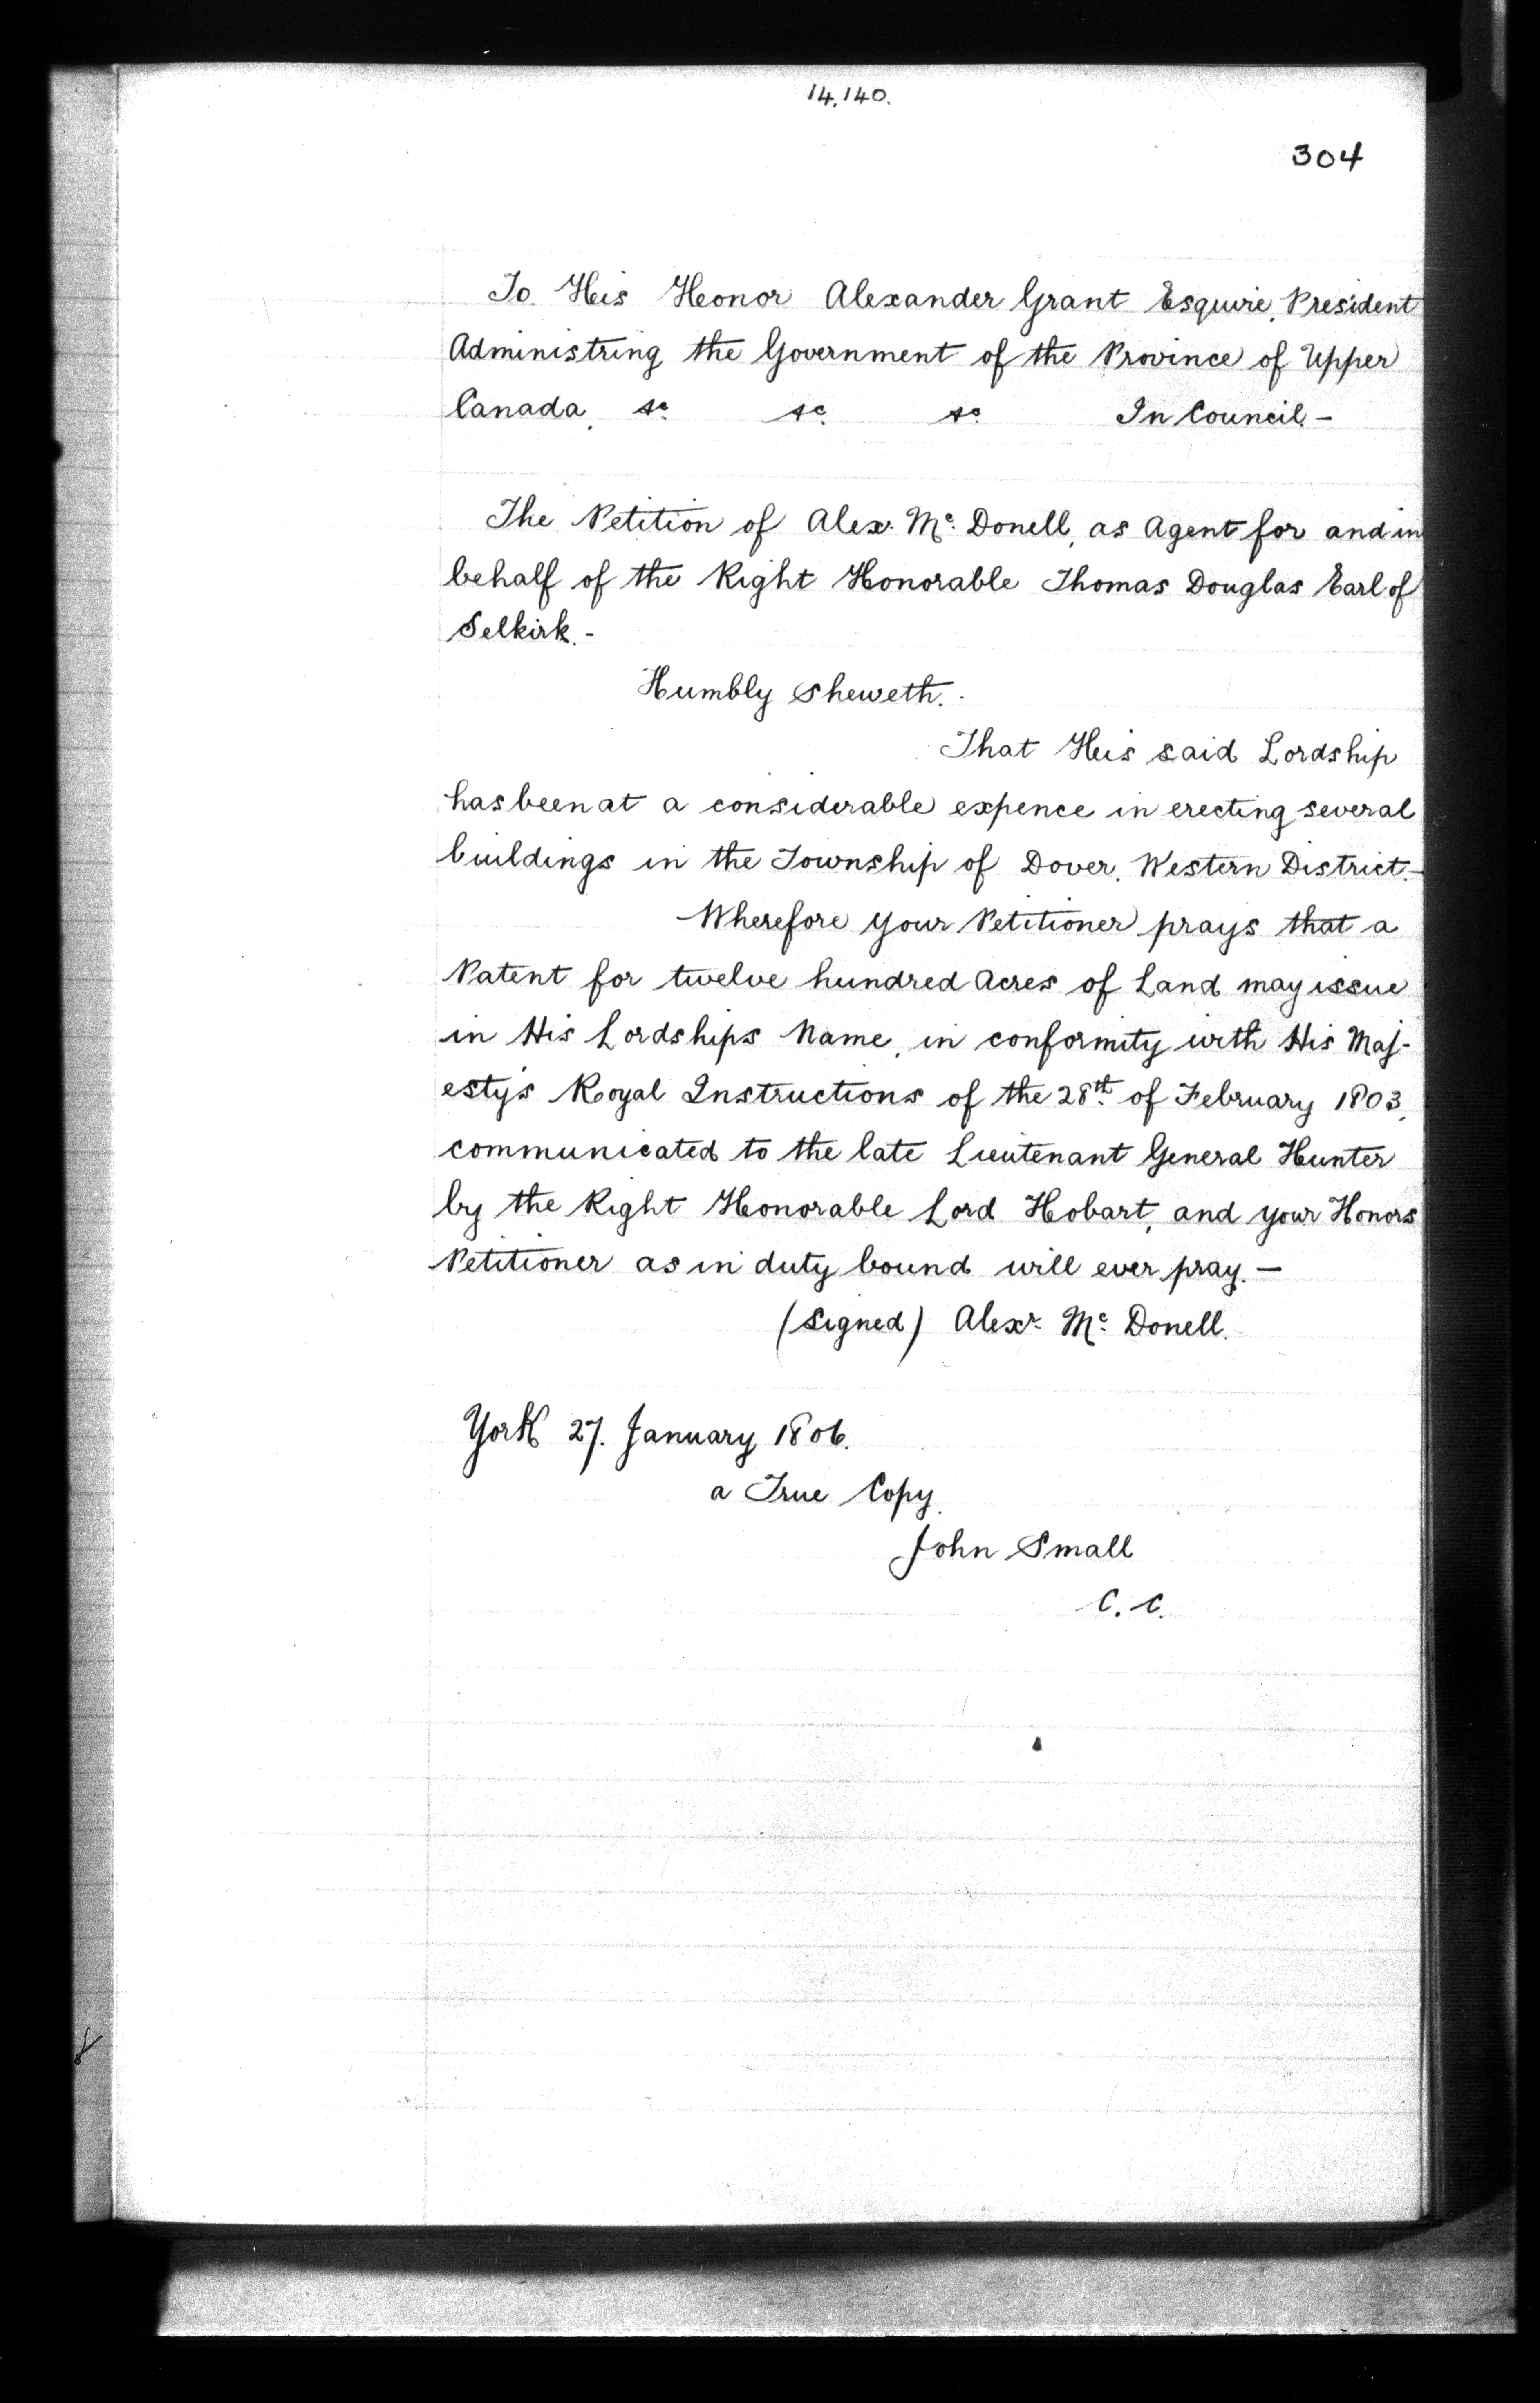 14,140.
304
To. His Honor Alexander Grant Esquire, President
Administring the Government of the Province of Upper
Canada, &c. &c. &c. In Council. —
The Petition of Alex. Mc. Donell, as Agent for and in
behalf of the Right Honorable Thomas Douglas Earl of
Selkirk. -
Humbly Sheweth. -
That His said Lordship
has been at a considerable expence in erecting several
buildings in the Township of Dover, Western District. —
Wherefore your Petitioner prays that a
Patent for twelve hundred Acres of Land may issue
in His Lordships Name, in conformity with His Maj-
esty's Royal Instructions of the 28th. of February 1803,
communicated to the late Lieutenant General Hunter
by the Right Honorable Lord Hobart, and your Honors
Petitioner as in duty bound will ever pray. —
(Signed) Alexr. Mc. Donell.
York 27. January 1806.
a True Copy.
John Small
C. C.